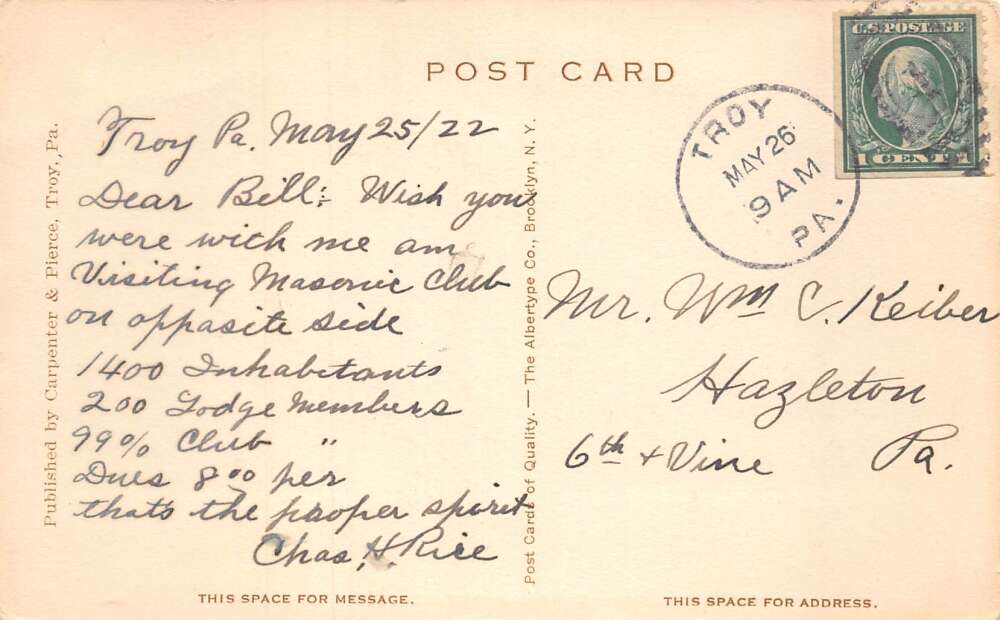 POST CARD
U.S. POSTAGE
1 CENT 1
TROY
MAY 26
9 AM
PA.
Published by Carpenter & Pierce, Troy, Pa.
Troy Pa. May 25/22
Dear Bill: Wish you
were with me am
Visiting Masonic Club
on oppasite side
1400 Inhabitants
200 Lodge Members
99% Club "
Dues 8 00 per
thats the propper spirit
Chas. H. Rice
Post Cards of Quality. — The Albertype Co., Brooklyn, N. Y.
Mr. Wm C. Keiber
Hazleton
6th + Vine Pa.
THIS SPACE FOR MESSAGE.
THIS SPACE FOR ADDRESS.